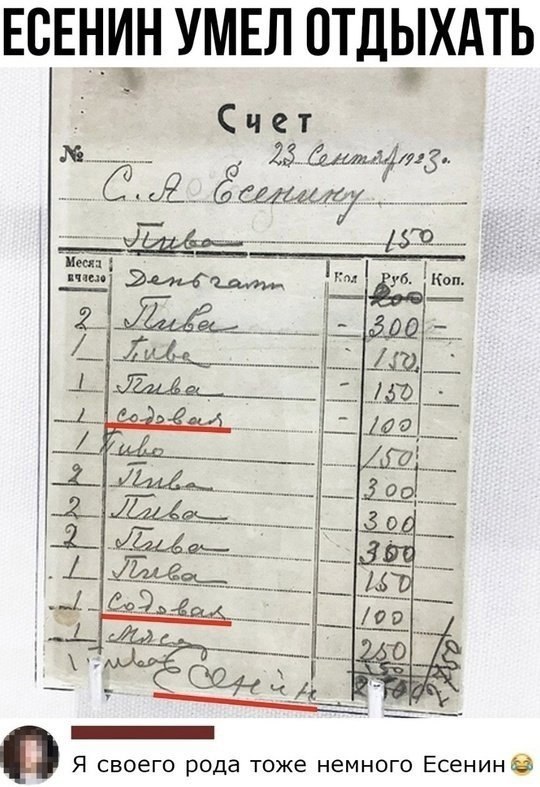 ЕСЕНИН УМЕЛ ОТДЫХАТЬ
Счет
№ 23 Сентября 1923.
С. А. Есенину
Пива 150
Месяц и число Деньгами Кол Руб. Коп.
200
2 Пива - 300 -
1 Пива 150
1 Пива - 150
1 Содовая - 100
1 Пиво 150
2 Пива 300
2 Пива 300
2 Пива 300
1 Пива 150
1 Содовая 100
1 Мясо 250
1 пиво 150
Есенин
Я своего рода тоже немного Есенин😂